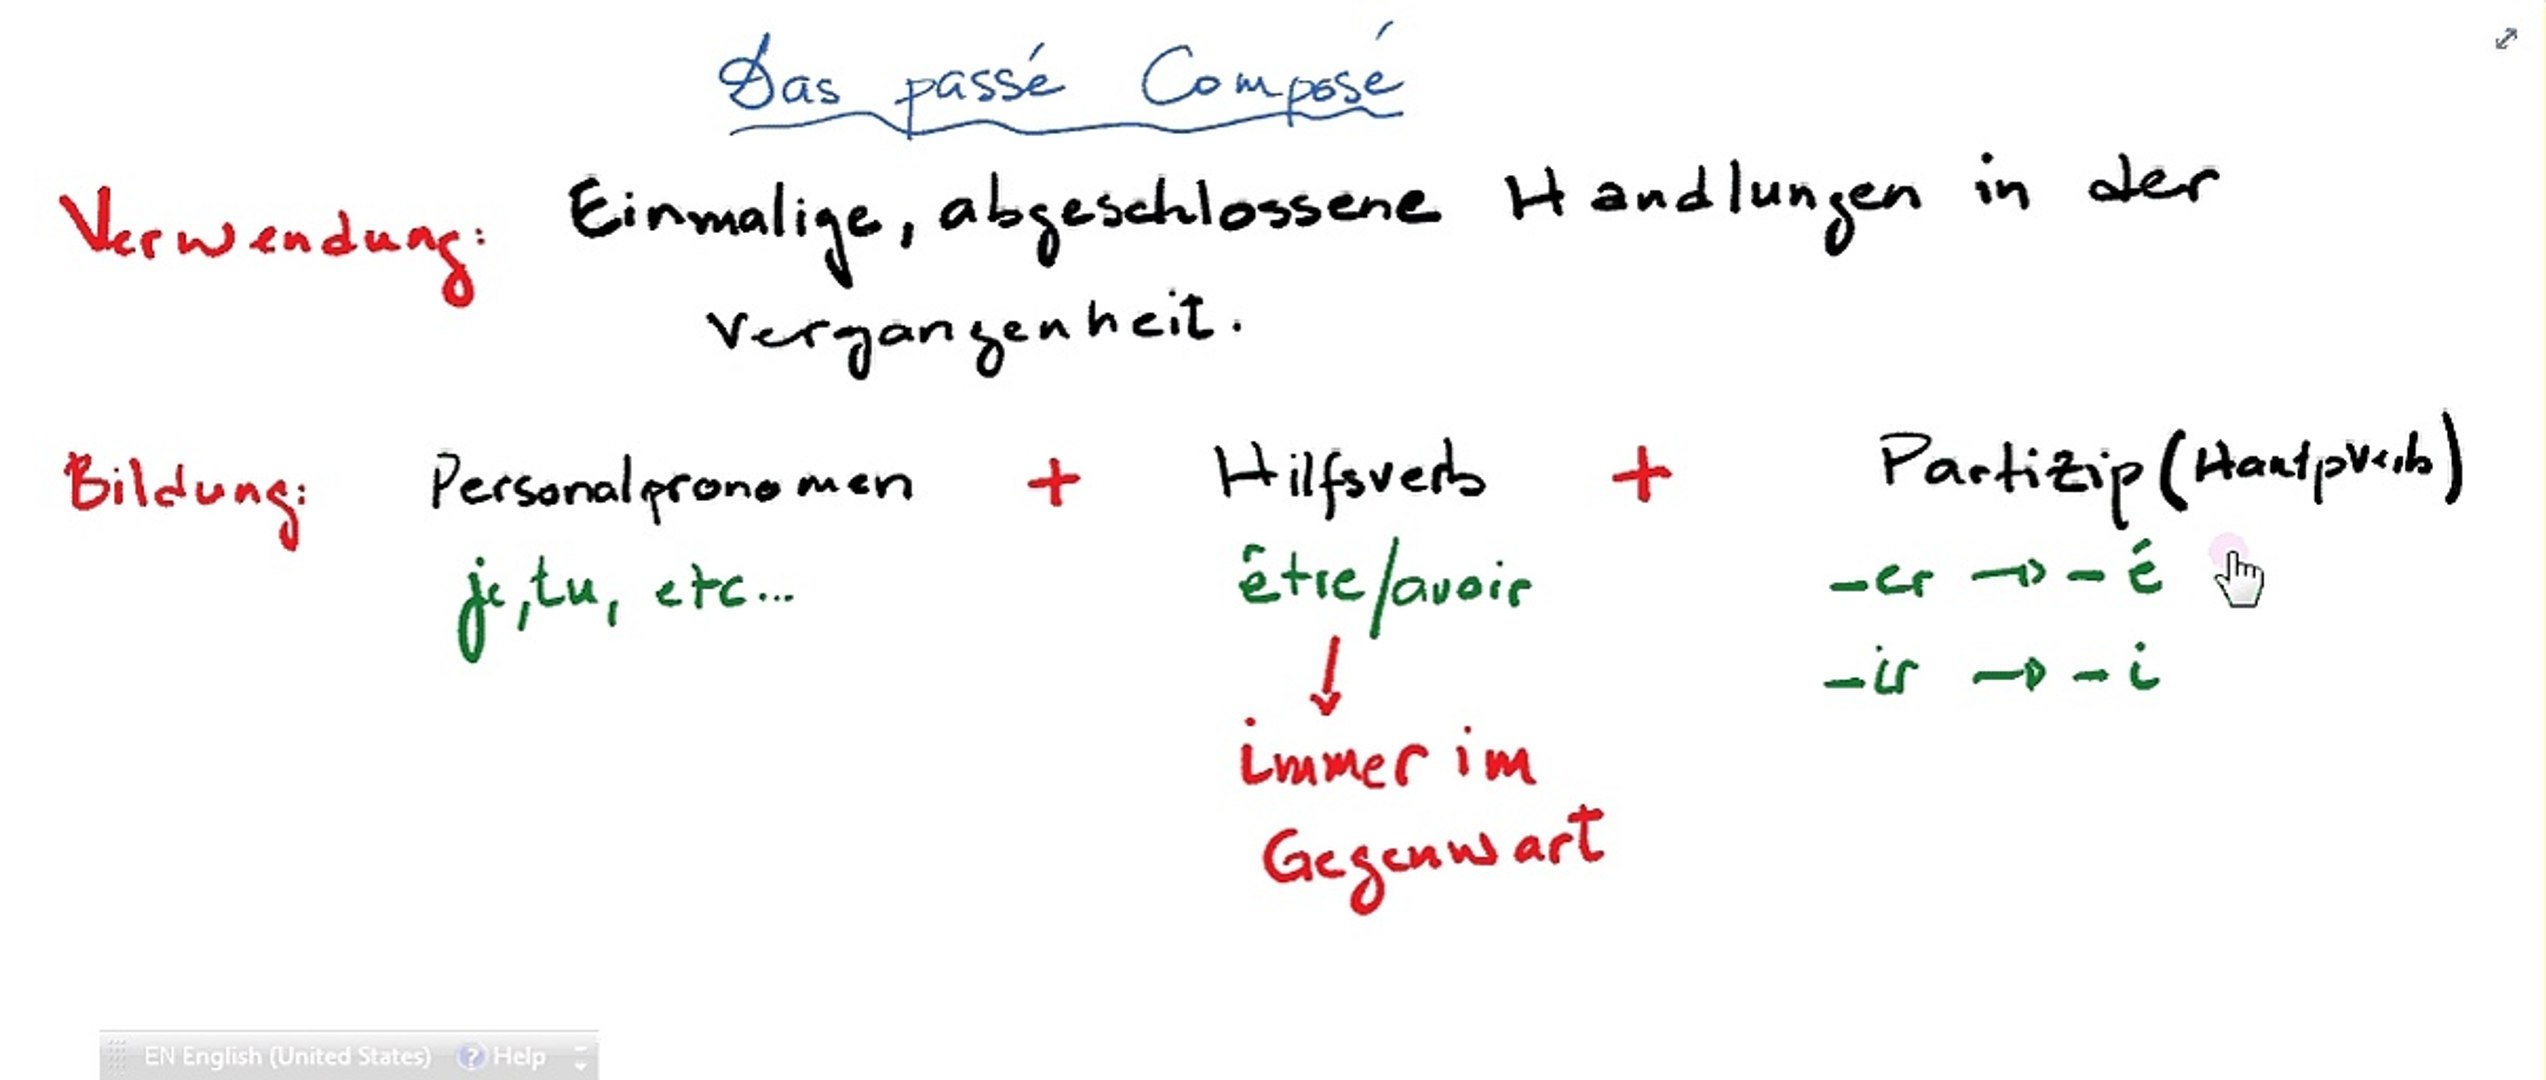 Das passé Composé
Verwendung: Einmalige, abgeschlossene Handlungen in der
Vergangenheit.
Bildung: Personalpronomen + Hilfsverb + Partizip (Hauptverb)
je, tu, etc... être/avoir -er → -é
-ir → -i
immer im
Gegenwart
EN English (United States) ? Help